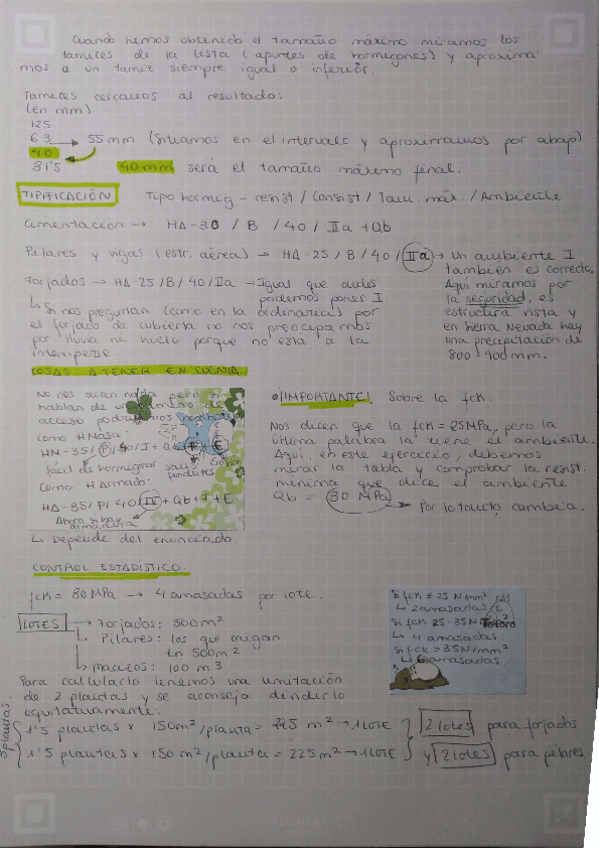 Cuando hemos obtenido el tamaño máximo miramos los
tamices de la lista (apuntes de hormigones) y aproxima-
mos a un tamiz siempre igual o inferior.
Tamices cercanos al resultado:
(en mm)
125
63 → 55 mm (situamos en el intervalo y aproximamos por abajo)
40
31'5 40 mm será el tamaño máximo final.
TIPIFICACIÓN Tipo hormig - resist / Consist / Tam. máx. / Ambiente
Cimentación → HA-30 / B / 40 / IIa + Qb
Pilares y vigas (estr. aérea) → HA-25 / B / 40 / IIa → Un ambiente I
también es correcto.
Aquí miramos por
la seguridad, es
estructura vista y
en Sierra Nevada hay
una precipitación de
800 900 mm.
Forjados → HA-25 / B / 40 / IIa → Igual que antes
podemos poner I
↳ Si nos preguntan (como en la ordinaria) por
el forjado de cubierta no nos preocupamos
por lluvia ni nieve porque no está a la
intemperie.
COSAS A TENER EN CUENTA.
No nos dicen nada pero si
hablan de un camino de
acceso
como HMasa:
HM-35/P/40/I+Qb+F+E
fácil de hormigonar sales fundentes
Como HArmado:
HA-35/P/40/IV+Qb+F+E
Ahora si hay
armadura
↳ Depende del enunciado.
¡IMPORTANTE! Sobre la fck.
Nos dicen que la fck = 25MPa, pero la
última palabra la tiene el ambiente.
Aquí, en este ejercicio, debemos
mirar la tabla y comprobar la resist.
mínima que dice el ambiente
Qb = 30 MPa → Por lo tanto cambia.
CONTROL ESTADÍSTICO.
fck = 30 MPa → 4 amasadas por lote.
LOTES → Forjados: 500 m²
↳ Pilares: los que caigan
en 500m²
↳ macizos: 100 m3
Si fck ≤ 25 N/mm²
↳ 2 amasadas
Si fck 25-35 N/mm²
↳ 4 amasadas.
Si fck > 35 N/mm²
↳ 6 amasadas.
Totoro
Para calcularlo tenemos una limitación
de 2 plantas y se aconseja dividirlo
equitativamente:
3 plantas
1'5 plantas x 150m²/planta = 225 m² → 1 LOTE 2 lotes para forjados
1'5 plantas x 150 m²/planta = 225 m² → 1 LOTE y 2 lotes para pilares